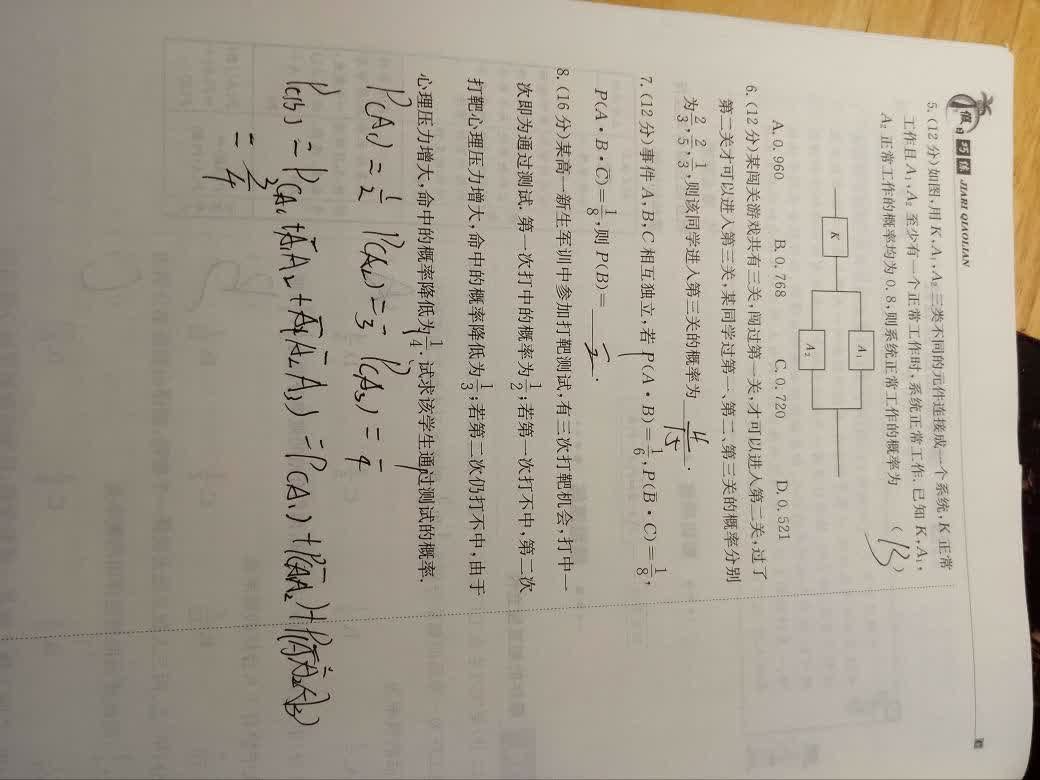 假日巧练 JIARI QIAOLIAN
5.(12分)如图,用K、A₁、A₂三类不同的元件连接成一个系统,K正常
工作且A₁、A₂至少有一个正常工作时,系统正常工作.已知K、A₁、
A₂正常工作的概率均为0.8,则系统正常工作的概率为 ( B )
K
A₁
A₂
A.0.960 B.0.768 C.0.720 D.0.521
6.(12分)某闯关游戏共有三关,闯过第一关,才可以进入第二关,过了
第二关才可以进入第三关,某同学过第一、第二、第三关的概率分别
为2/3,2/5,1/3,则该同学进入第三关的概率为 4/15 .
7.(12分)事件A,B,C相互独立,若P(A·B)=1/6,P(B̄·C)=1/8,
P(A·B·C̄)=1/8,则P(B)= 1/2 .
8.(16分)某高一新生军训中参加打靶测试,有三次打靶机会,打中一
次即为通过测试.第一次打中的概率为1/2;若第一次打不中,第二次
打靶心理压力增大,命中的概率降低为1/3;若第二次仍打不中,由于
心理压力增大,命中的概率降低为1/4.试求该学生通过测试的概率.
P(A₁)=1/2 P(A₂)=1/3 P(A₃)=1/4
P(B)=P(A₁+Ā₁A₂+Ā₁Ā₂A₃)=P(A₁)+P(Ā₁A₂)+P(Ā₁Ā₂A₃)
=3/4